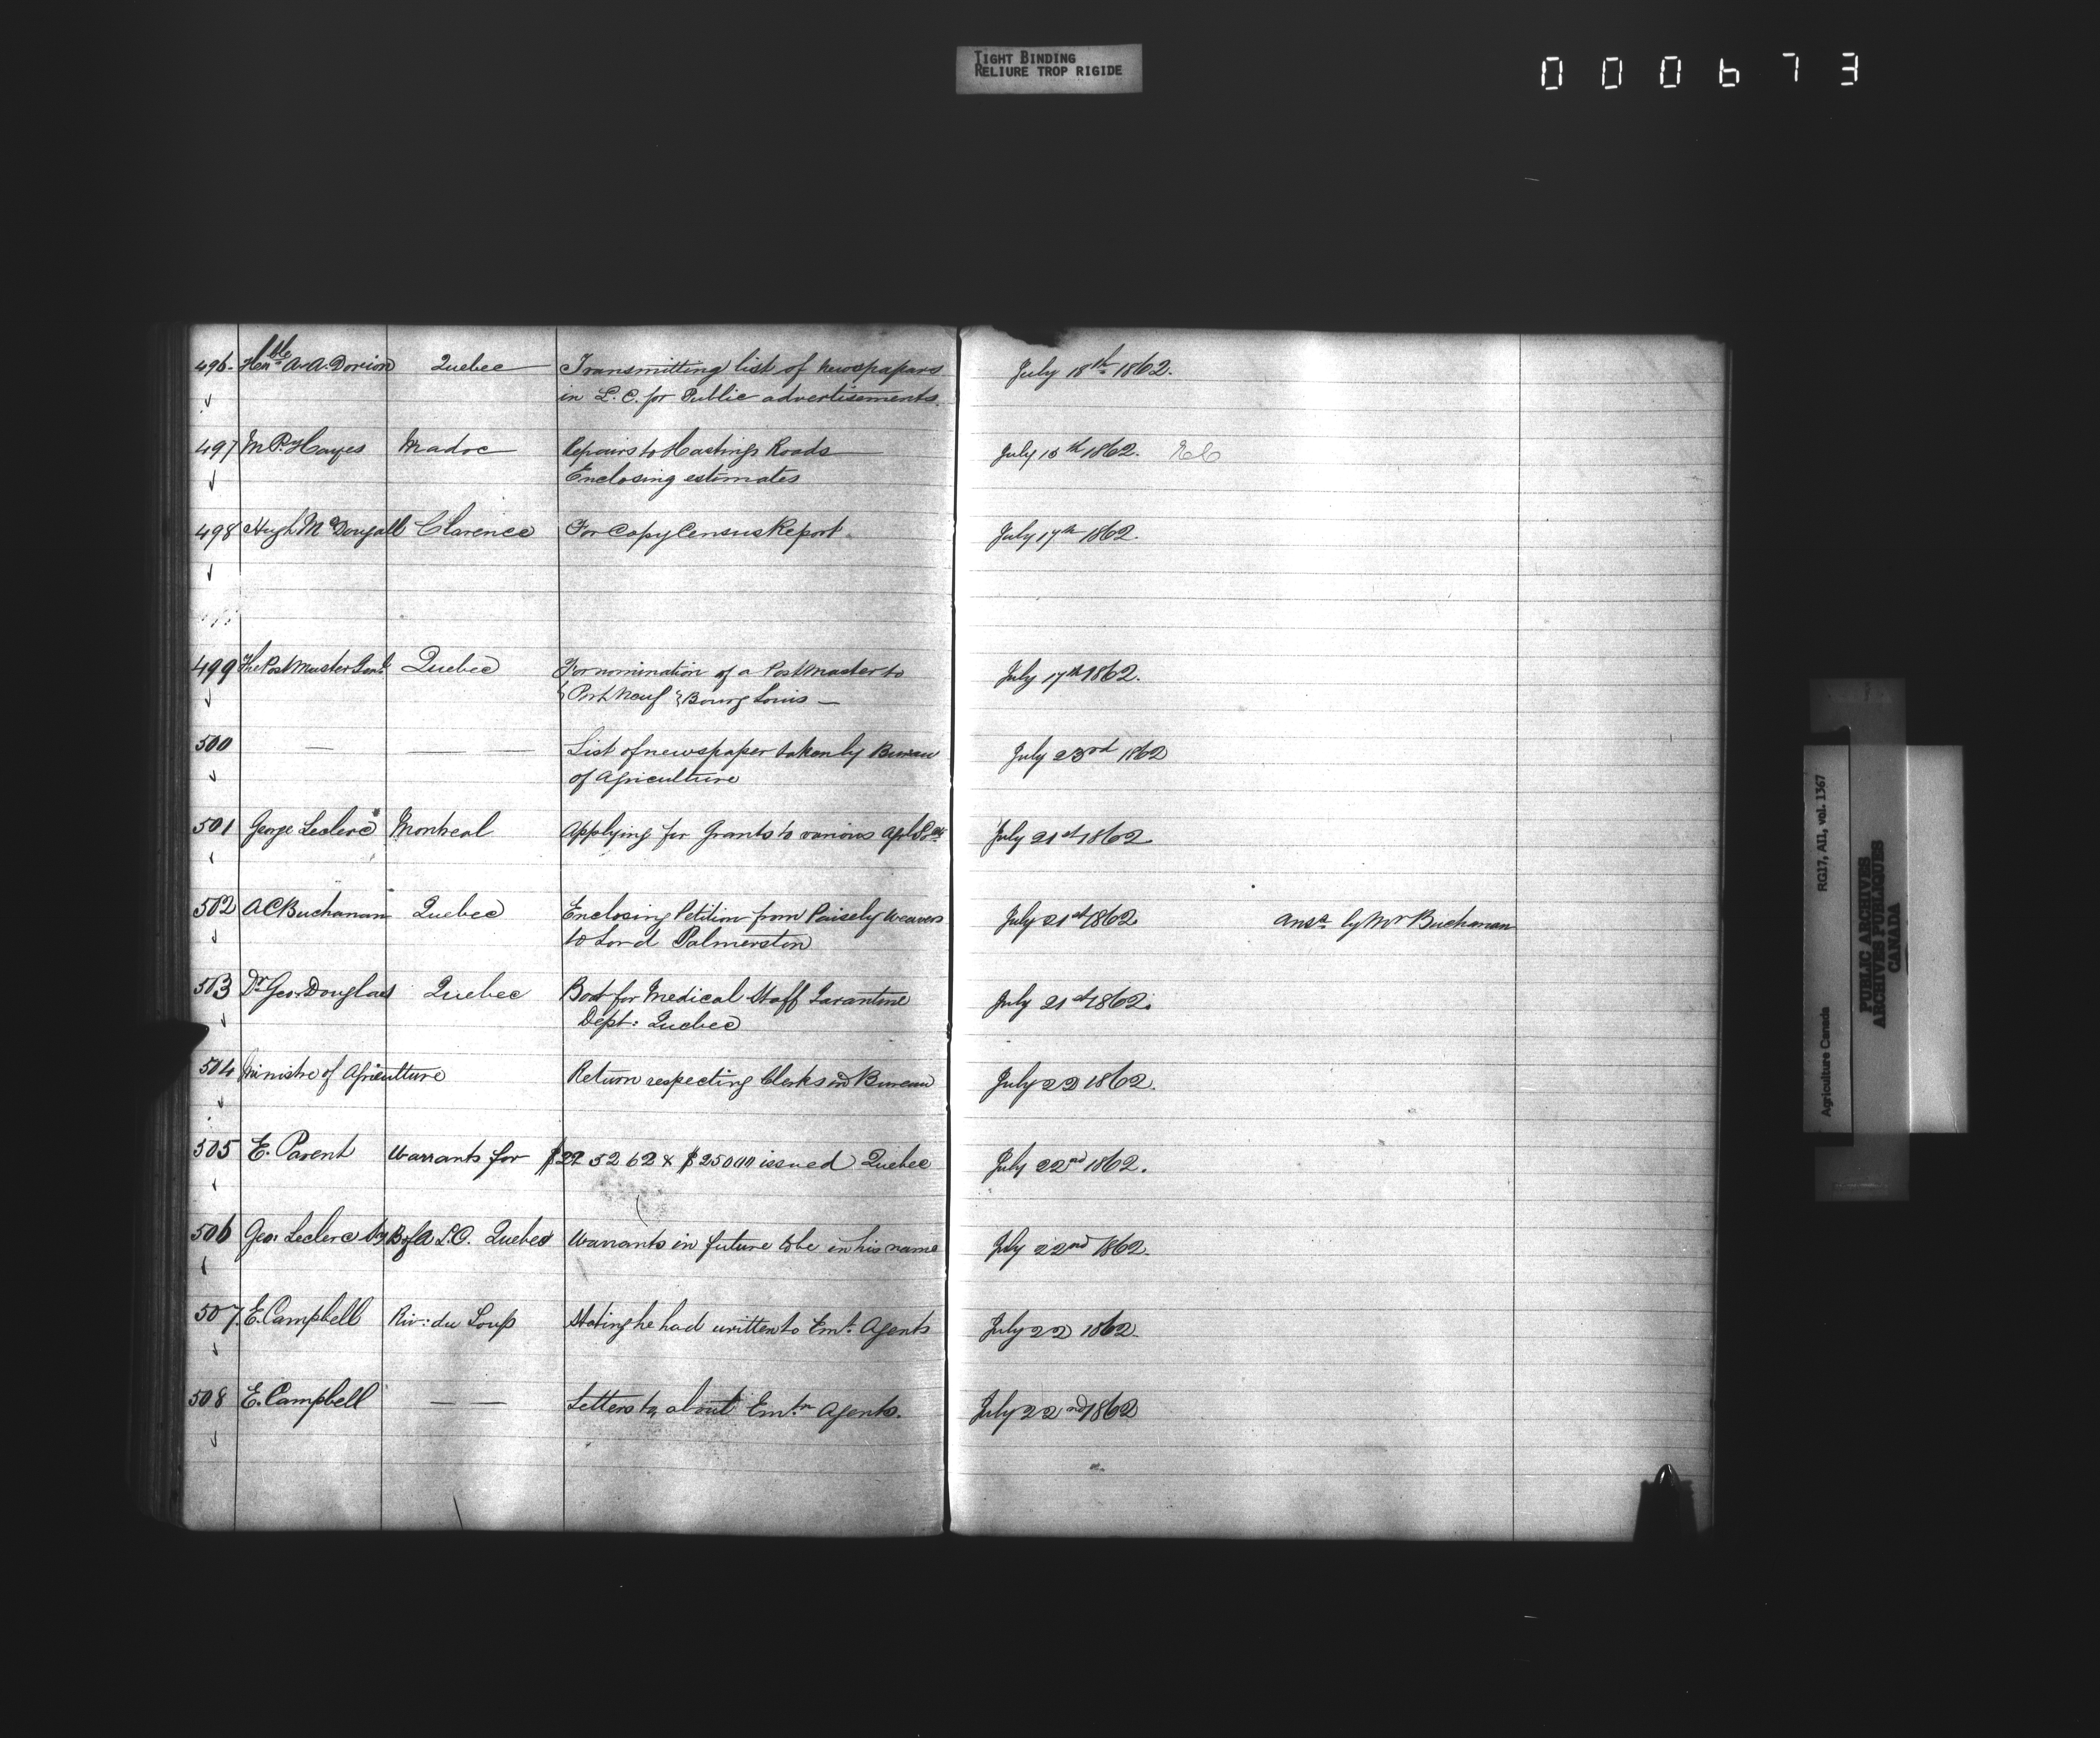 TIGHT BINDING
RELIURE TROP RIGIDE
000673
496. Honble A. A. Dorion Quebec Transmitting list of newspapers July 18th 1862.
in L. C. for Public advertisements.
497 M. P. Hayes Madoc Repairs to Hastings Roads July 15th 1862.
Enclosing estimates
498 Hugh McDougall Clarence For Copy Census Report. July 17th 1862.
499 The Post Master Genl. Quebec For nomination of a Postmaster to July 17th 1862.
Port Neuf Bourg Louis —
500 — — — List of newspaper taken by Bureau July 23rd 1862
of Agriculture
501 George Leclerc Montreal Applying for Grants to various July 21st 1862
502 A C Buchanan Quebec Enclosing Petition from Paisely Weavers July 21st 1862 ansd. by Mr Buchanan
to Lord Palmerston
503 Dr Geo. Douglas Quebec Boat for Medical Staff Quarantine July 21st 1862.
Dept: Quebec
504 Ministre of Agriculture Return respecting Clerks in Bureau July 22 1862.
505 E. Parent Warrants for issued Quebec July 22nd 1862.
506 Geo. Leclerc B of A L. C. Quebec Warrants in future to be in his name July 22nd 1862.
507. E. Campbell Riv: du Loup Stating he had written to Emt. Agents July 22 1862.
508 E. Campbell — — Letters to, about Emtn Agents. July 22nd 1862
Agriculture Canada RG17, AII, vol. 1367
PUBLIC ARCHIVES
ARCHIVES PUBLIQUES
CANADA